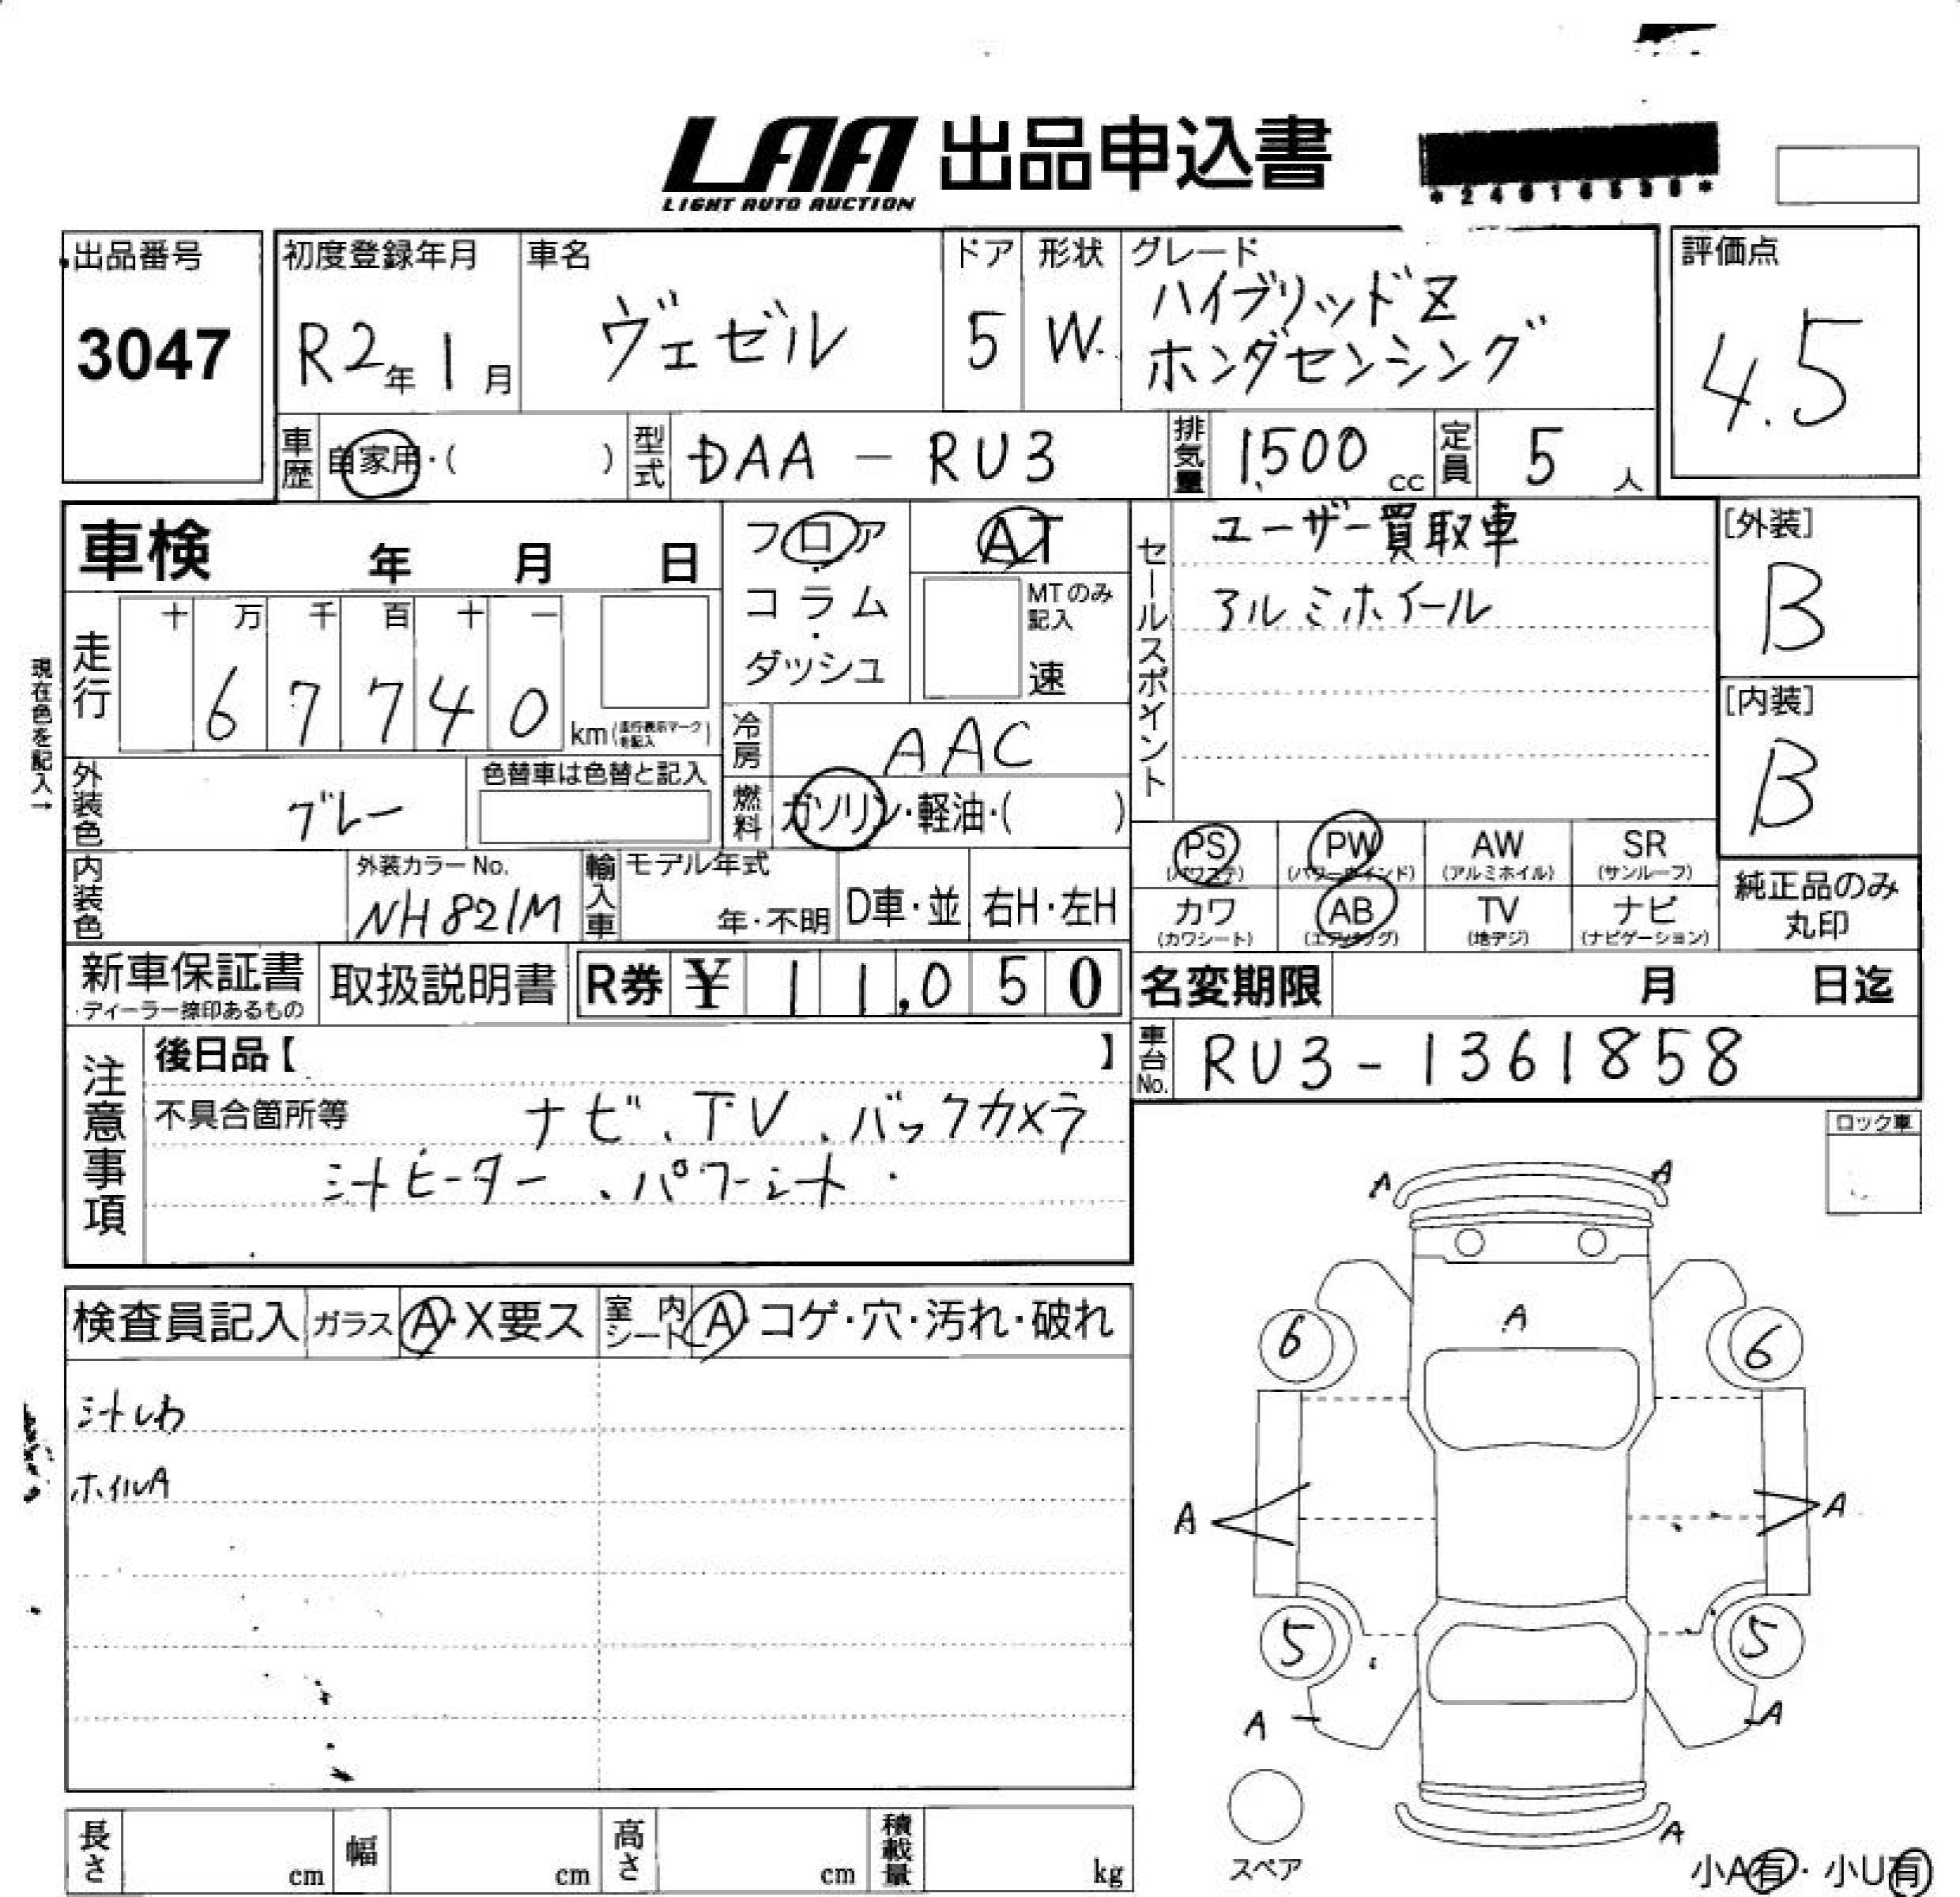 LAA 出品申込書
LIGHT AUTO AUCTION
出品番号
3047
初度登録年月
R2年 1月
車名
ヴェゼル
ドア
5
形状
W.
グレード
ハイブリッドZ
ホンダセンシング
評価点
4.5
車歴 自家用・( )
型式 DAA - RU3
排気量 1,500 cc
定員 5 人
車検 年 月 日
フロア
・
コラム
・
ダッシュ
AT
MTのみ
記入
速
セールスポイント
ユーザー買取車
アルミホイール
[外装]
B
[内装]
B
現在色を記入→
走行
十 万 千 百 十 一
6 7 7 4 0
km(走行表示マークを記入)
冷房 AAC
外装色 グレー
色替車は色替と記入
燃料 ガソリン・軽油・( )
PS
(パワステ)
PW
(パワーウインド)
AW
(アルミホイル)
SR
(サンルーフ)
カワ
(カワシート)
AB
(エアバッグ)
TV
(地デジ)
ナビ
(ナビゲーション)
純正品のみ
丸印
内装色
外装カラーNo.
NH821M
輸入車
モデル年式
年・不明
D車・並
右H・左H
新車保証書
・ディーラー捺印あるもの
取扱説明書
R券 ¥ 1 1,0 5 0
名変期限 月 日迄
車台No. RU3-1361858
注意事項
後日品【 】
不具合箇所等 ナビ、TV、バックカメラ
シートヒーター、パワーシート
ロック車
検査員記入
ガラス A・X要ス
室内シート A・コゲ・穴・汚れ・破れ
シートしわ
ホイルA
A A
A
6 6
A A
5 5
A A
A
スペア
小A有・小U有
長さ cm
幅 cm
高さ cm
積載量 kg